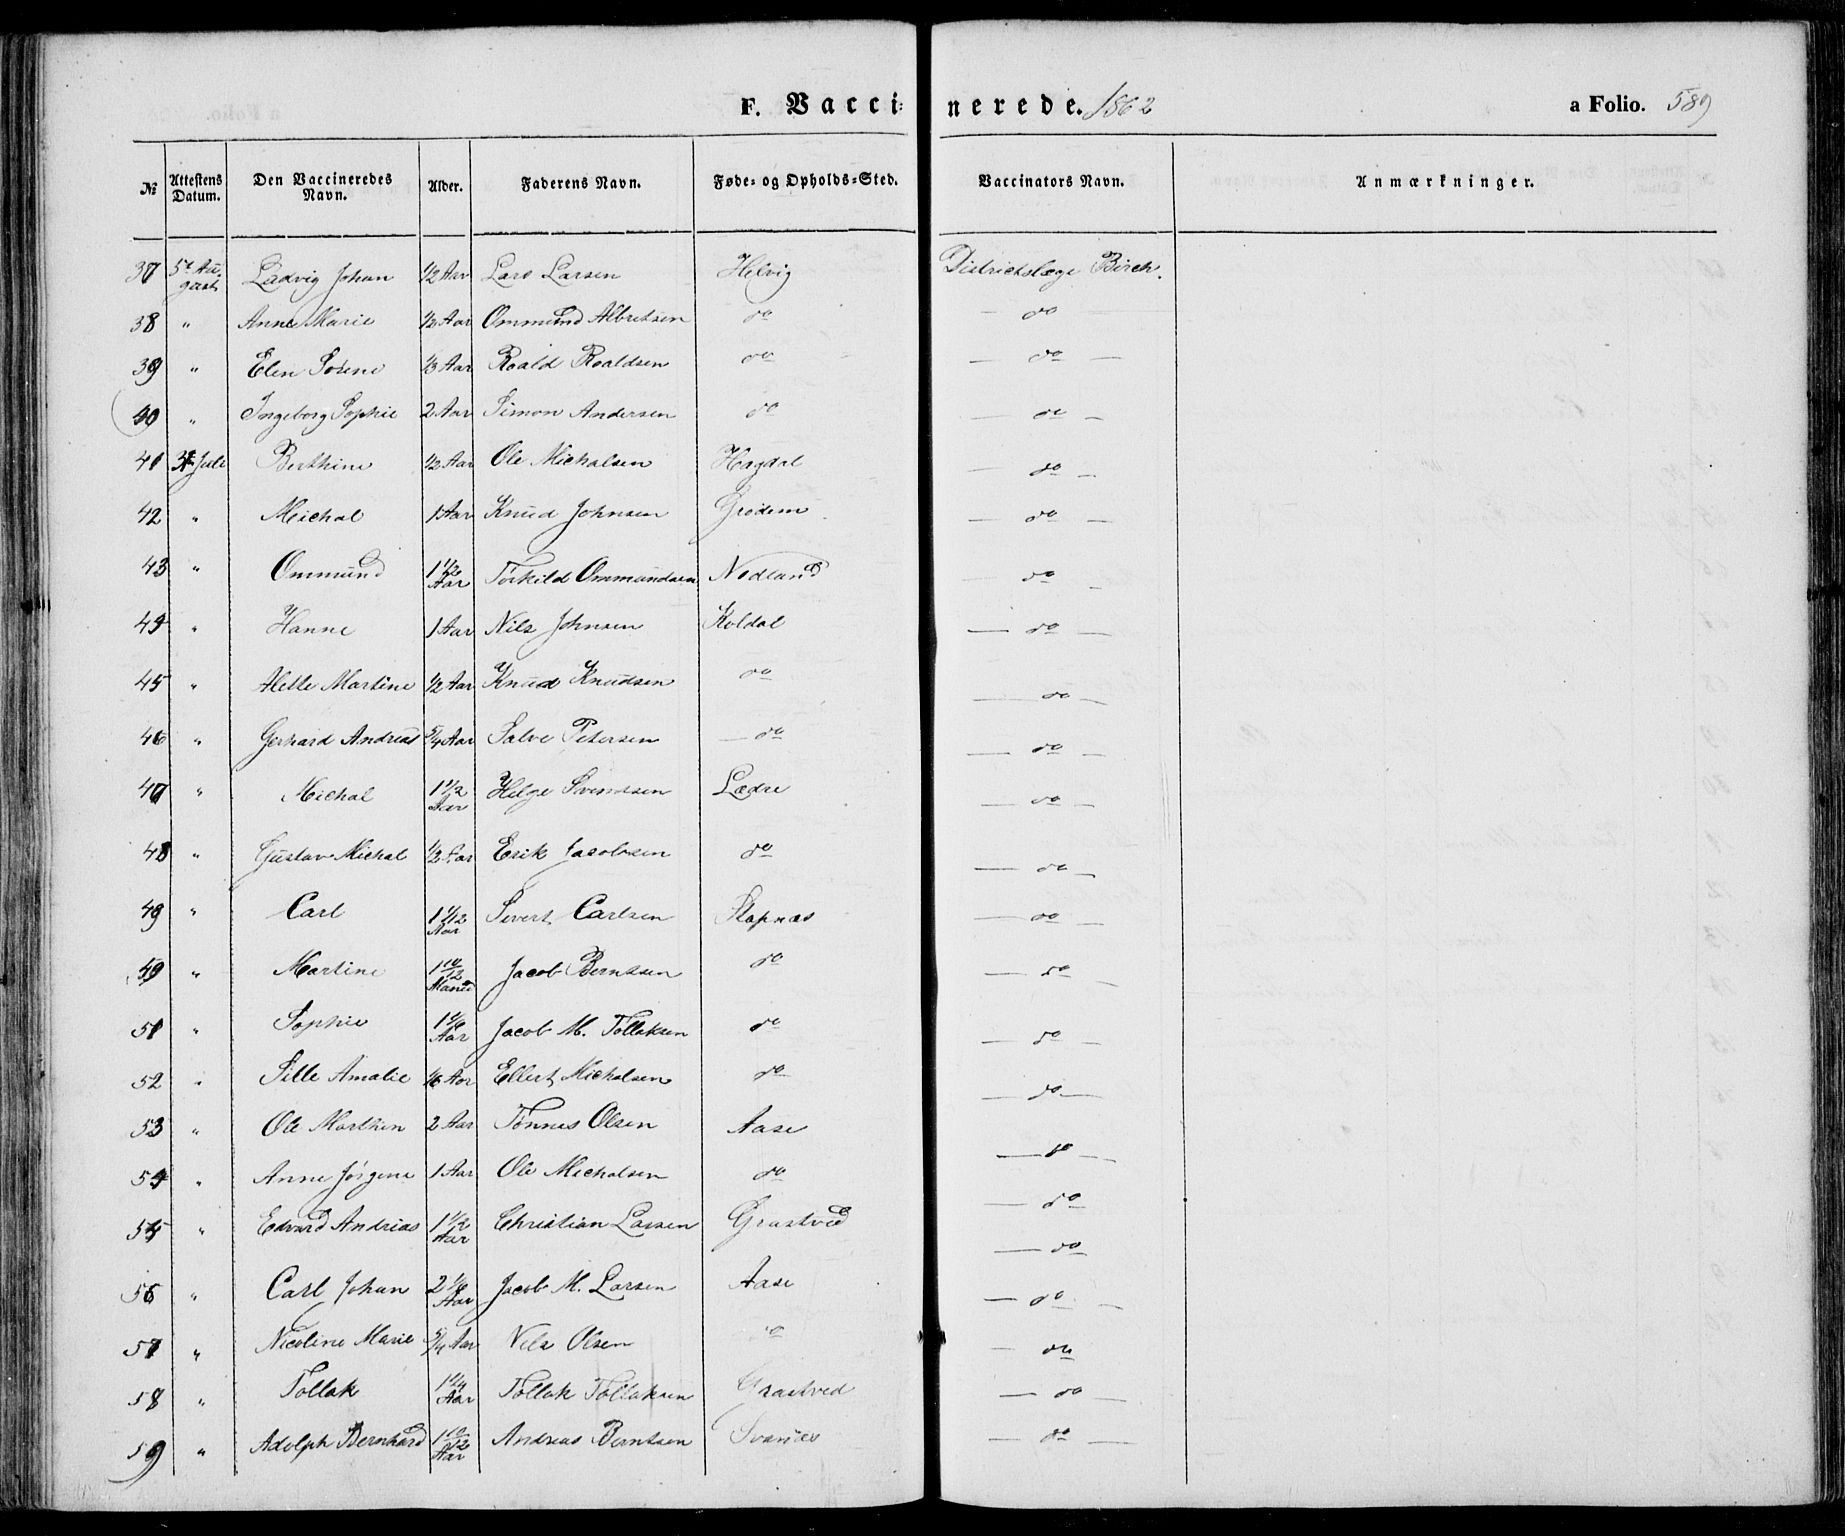 F. Vacci- nerede. 1862 a Folio. 589
№ Attestens Datum. Den Vaccineredes Navn. Alder. Faderens Navn. Føde- og Opholds-Sted. Vaccinators Navn. Anmærkninger.
37 5t August Ludvig Johan 1/2 Aar Lars Larsen Helvig Districtslæge Birch.
38 " Anne Marie 1/2 Aar Ommund Albretsen do — do
39 " Elen Sosene 1/3 Aar Roald Roaldsen do — do —
40 " Ingeborg Sophie 2 Aar Simon Andersen do — do —
41 Juli Berthine 1/2 Aar Ole Michalsen Hagdal — do —
42 " Michal 1 Aar Knud Johnsen Grødem — do —
43 " Ommund 1 1/2 Aar Torkild Ommundsen Nodland do —
44 " Hanne 1 Aar Nils Johnsen Koldal — do —
45 " Alette Martine 1/2 Aar Knud Knudsen do — do —
46 " Gerhard Andreas 5/4 Aar Salve Petersen — do — do —
47 " Michal 1 1/2 Aar Helge Svendsen Lædre — do —
48 " Gustav Michal 1/2 Aar Erik Jacobsen do — do —
49 " Carl 1 1/12 Aar Sivert Carlsen Stapnæs — do —
50 " Martine 1 10/12 Maned Jacob Berntsen do — do —
51 " Sophie 1 1/6 Aar Jacob M. Tollaksen do — do —
52 " Sille Amalie 1/6 Aar Ellert Michalsen do — do —
53 " Ole Marthin 2 Aar Tönnes Olsen Aase — do —
54 " Anne Jørgine 1 Aar Ole Michalsen do — do —
55 " Edvard Andreas 1 1/2 Aar Christian Larsen Grastved — do —
56 " Carl Johan 2 1/6 Aar Jacob M. Larsen Aase — do —
57 " Nicoline Marie 5/4 Aar Nils Olsen do — do
58 " Tollak 1 1/4 Aar Tollak Tollaksen Grastved — do —
59 " Adolph Bernhard 1 10/12 Aar Andreas Berntsen Svanæs — do —